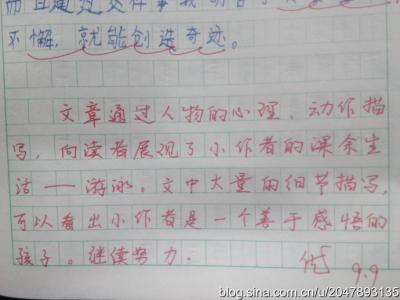 而且通过这件事我明白了
不懈，就能创造奇迹。
文章通过人物的心理、动作描
写，向读者展现了小作者的课余生
活——游泳。文中大量的细节描写，
可以看出小作者是一个善于感悟的
孩子。继续努力。
优 9.9
blog.sina.com.cn/u/2047893135